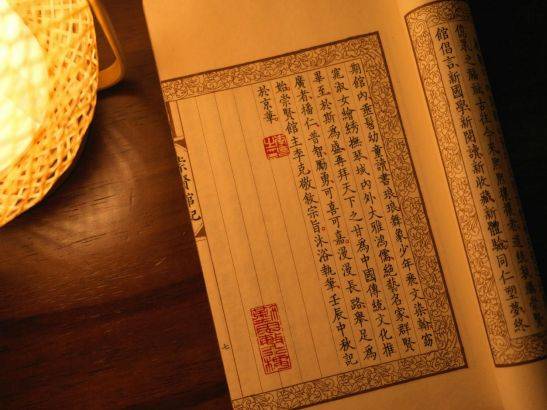 館倡言新國學新閱讀新收藏新體驗同仁塑夢終
期館內垂髫幼童讀書琅琅舞象少年乘文染翰窈
窕淑女繪綉撫琴城內外大雅鴻儒絕藝名家群賢
畢至於斯為盛再拜天下之甘為中國傳統文化推
廣者揚仁普智勵勇可喜可嘉漫漫長路舉足為
始崇賢館主李克敬敘宗旨沐浴執筆壬辰中秋記
於京華
崇賢館記
七